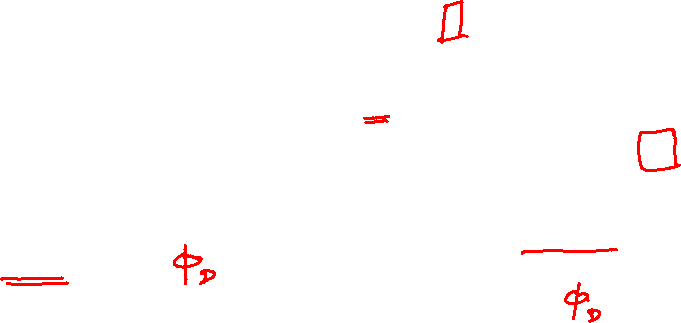 =
ϕ_D
ϕ_D